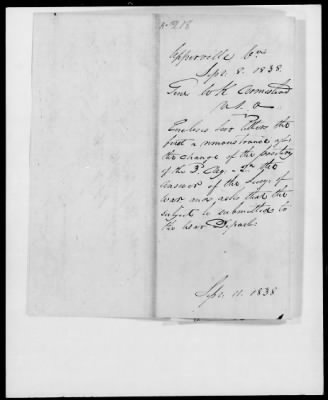 A-218
Upperville Va
Sep. 8. 1838.
Genl W K Armistead
U.S.A
Encloses two letters the
first a remonstrance agt
the change of the position
of the 3d Reg. the
answer of the Secy of
War and asks that the
subject be submitted to
the War Depart.
Sep. 11. 1838